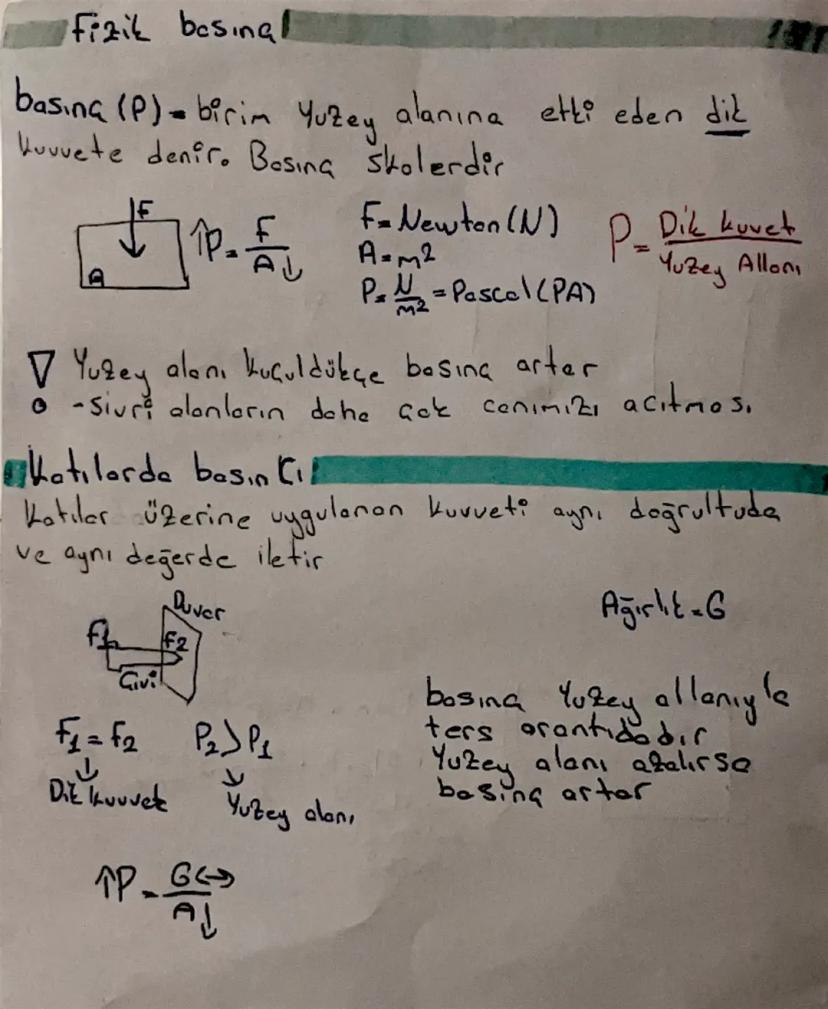 Fizik basınç
basınç (P) = birim Yuzey alanına etki eden dik
kuvvete denir. Basınç skalerdir
F
A
↑P = F/A↓
F = Newton (N)
A = m²
P = N/m² = Pascal (PA)
P = Dik kuvet/Yuzey Allanı
Yuzey alanı kuçuldükçe basınç artar
- Sivri alanların daha çok canımızı acıtması
Katılarda basınCı
Katılar üzerine uygulanan kuvveti aynı doğrultuda
ve aynı değerde iletir
Duvar
F1
F2
Çivi
Ağırlık = G
F1 = F2
P2 > P1
↓
↓
Dik kuvvet
Yuzey alanı
basınç Yuzey allanıyla
ters orantıdadır
Yuzey alanı azalırsa
basınç artar
↑P = G↔/A↓